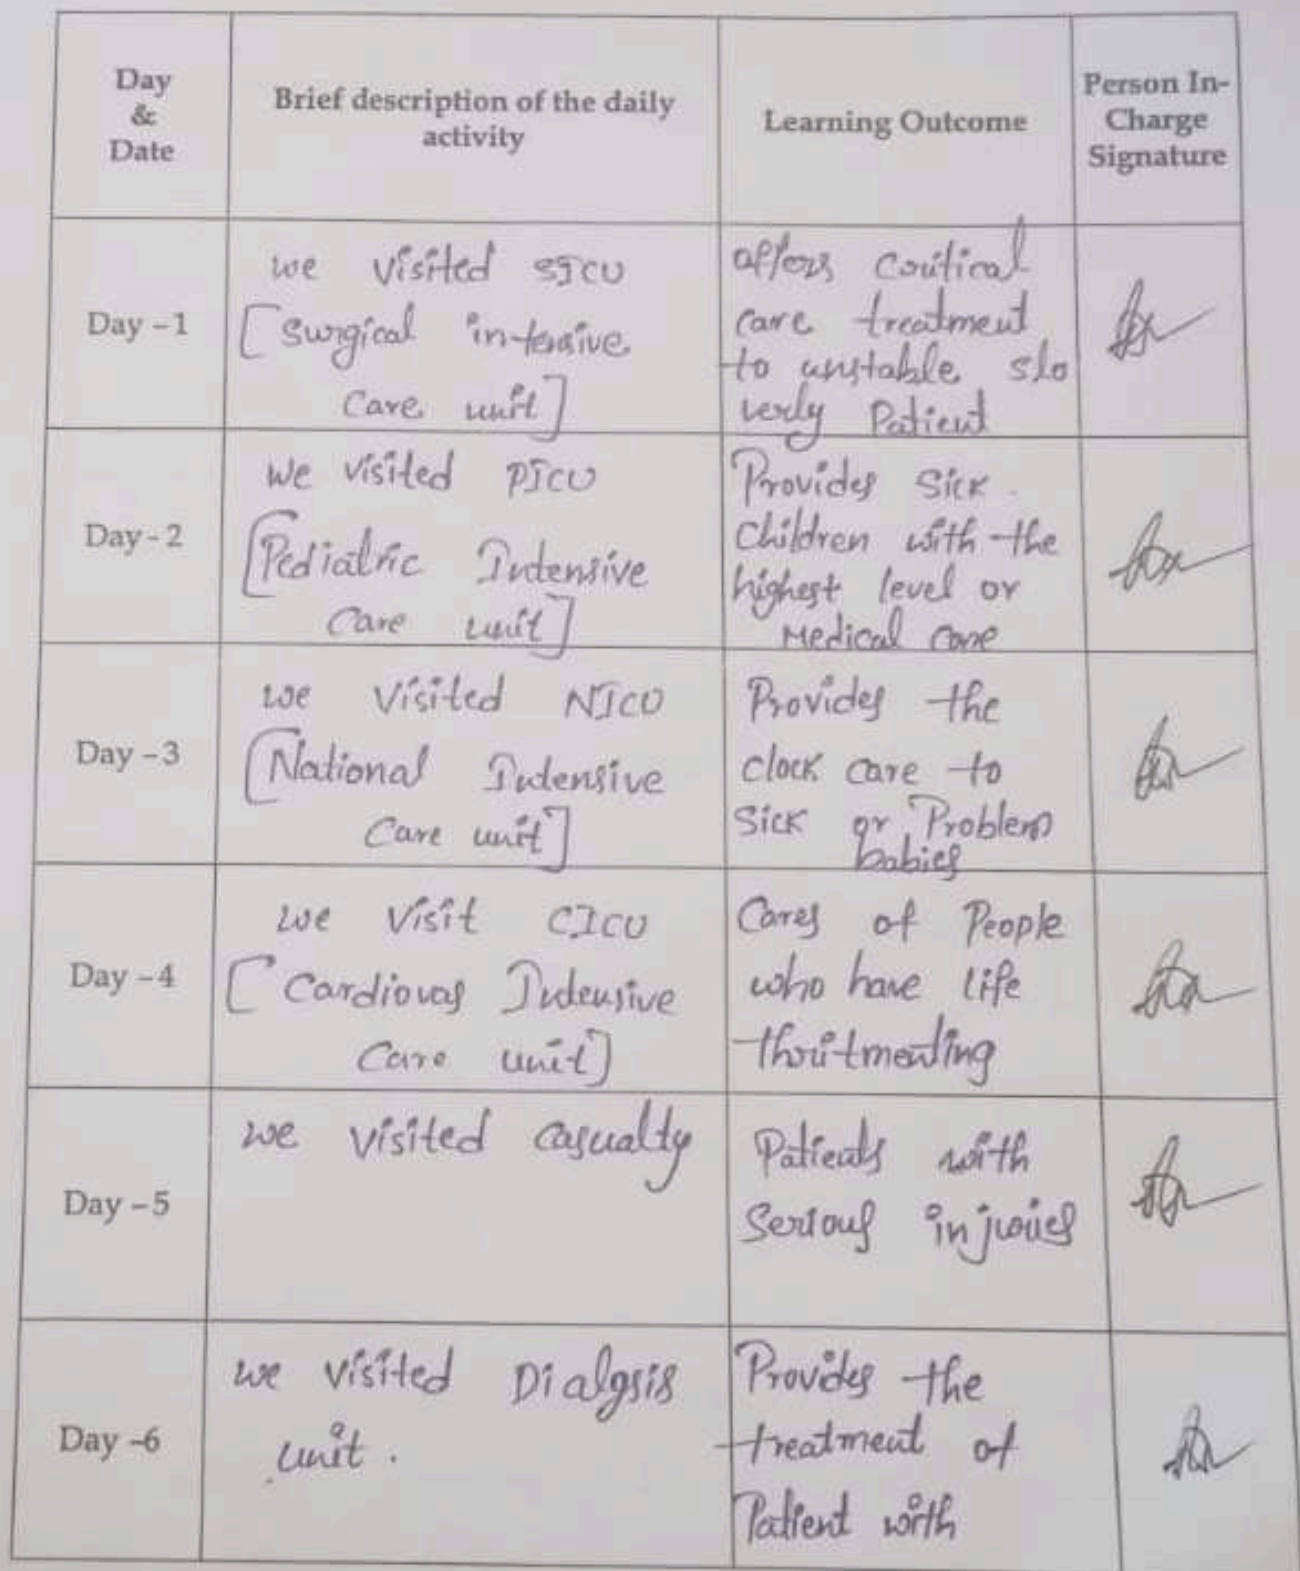 Day
&
Date
Brief description of the daily
activity
Learning Outcome
Person In-
Charge
Signature
Day -1
we visited SICU
[Surgical intensive
Care unit]
offers coritical
care treatment
to unstable slo
verly Patient
Day - 2
we visited PICU
[Pediatric Intensive
Care unit]
Provides Sick
children with the
highest level or
Medical care
Day -3
we visited NICU
[National Intensive
Care unit]
Provides the
clock care to
Sick or Problem
babies
Day -4
we visit CICU
[Cardiovas Intensive
Care unit]
Cares of People
who have life
Day -5
we visited casualty
Patients with
Serious injuries
Day -6
we visited Dialysis
unit.
Provides the
treatment of
Patient with